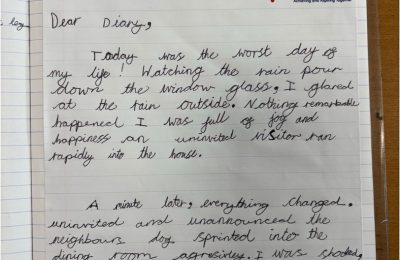 Achieving and Aspiring Together
leg
Dear Diary,
Today was the worst day of
my life! Watching the rain pour
down the window glass, I glared
at the rain outside. Nothing remarkable
happened I was full of fog and
happiness an uninvited visitor ran
rapidly into the house.
A minute later, everything changed.
uninvited and unannounced the
neighbours dog sprinted into the
dining room agresivley. I was shocked,